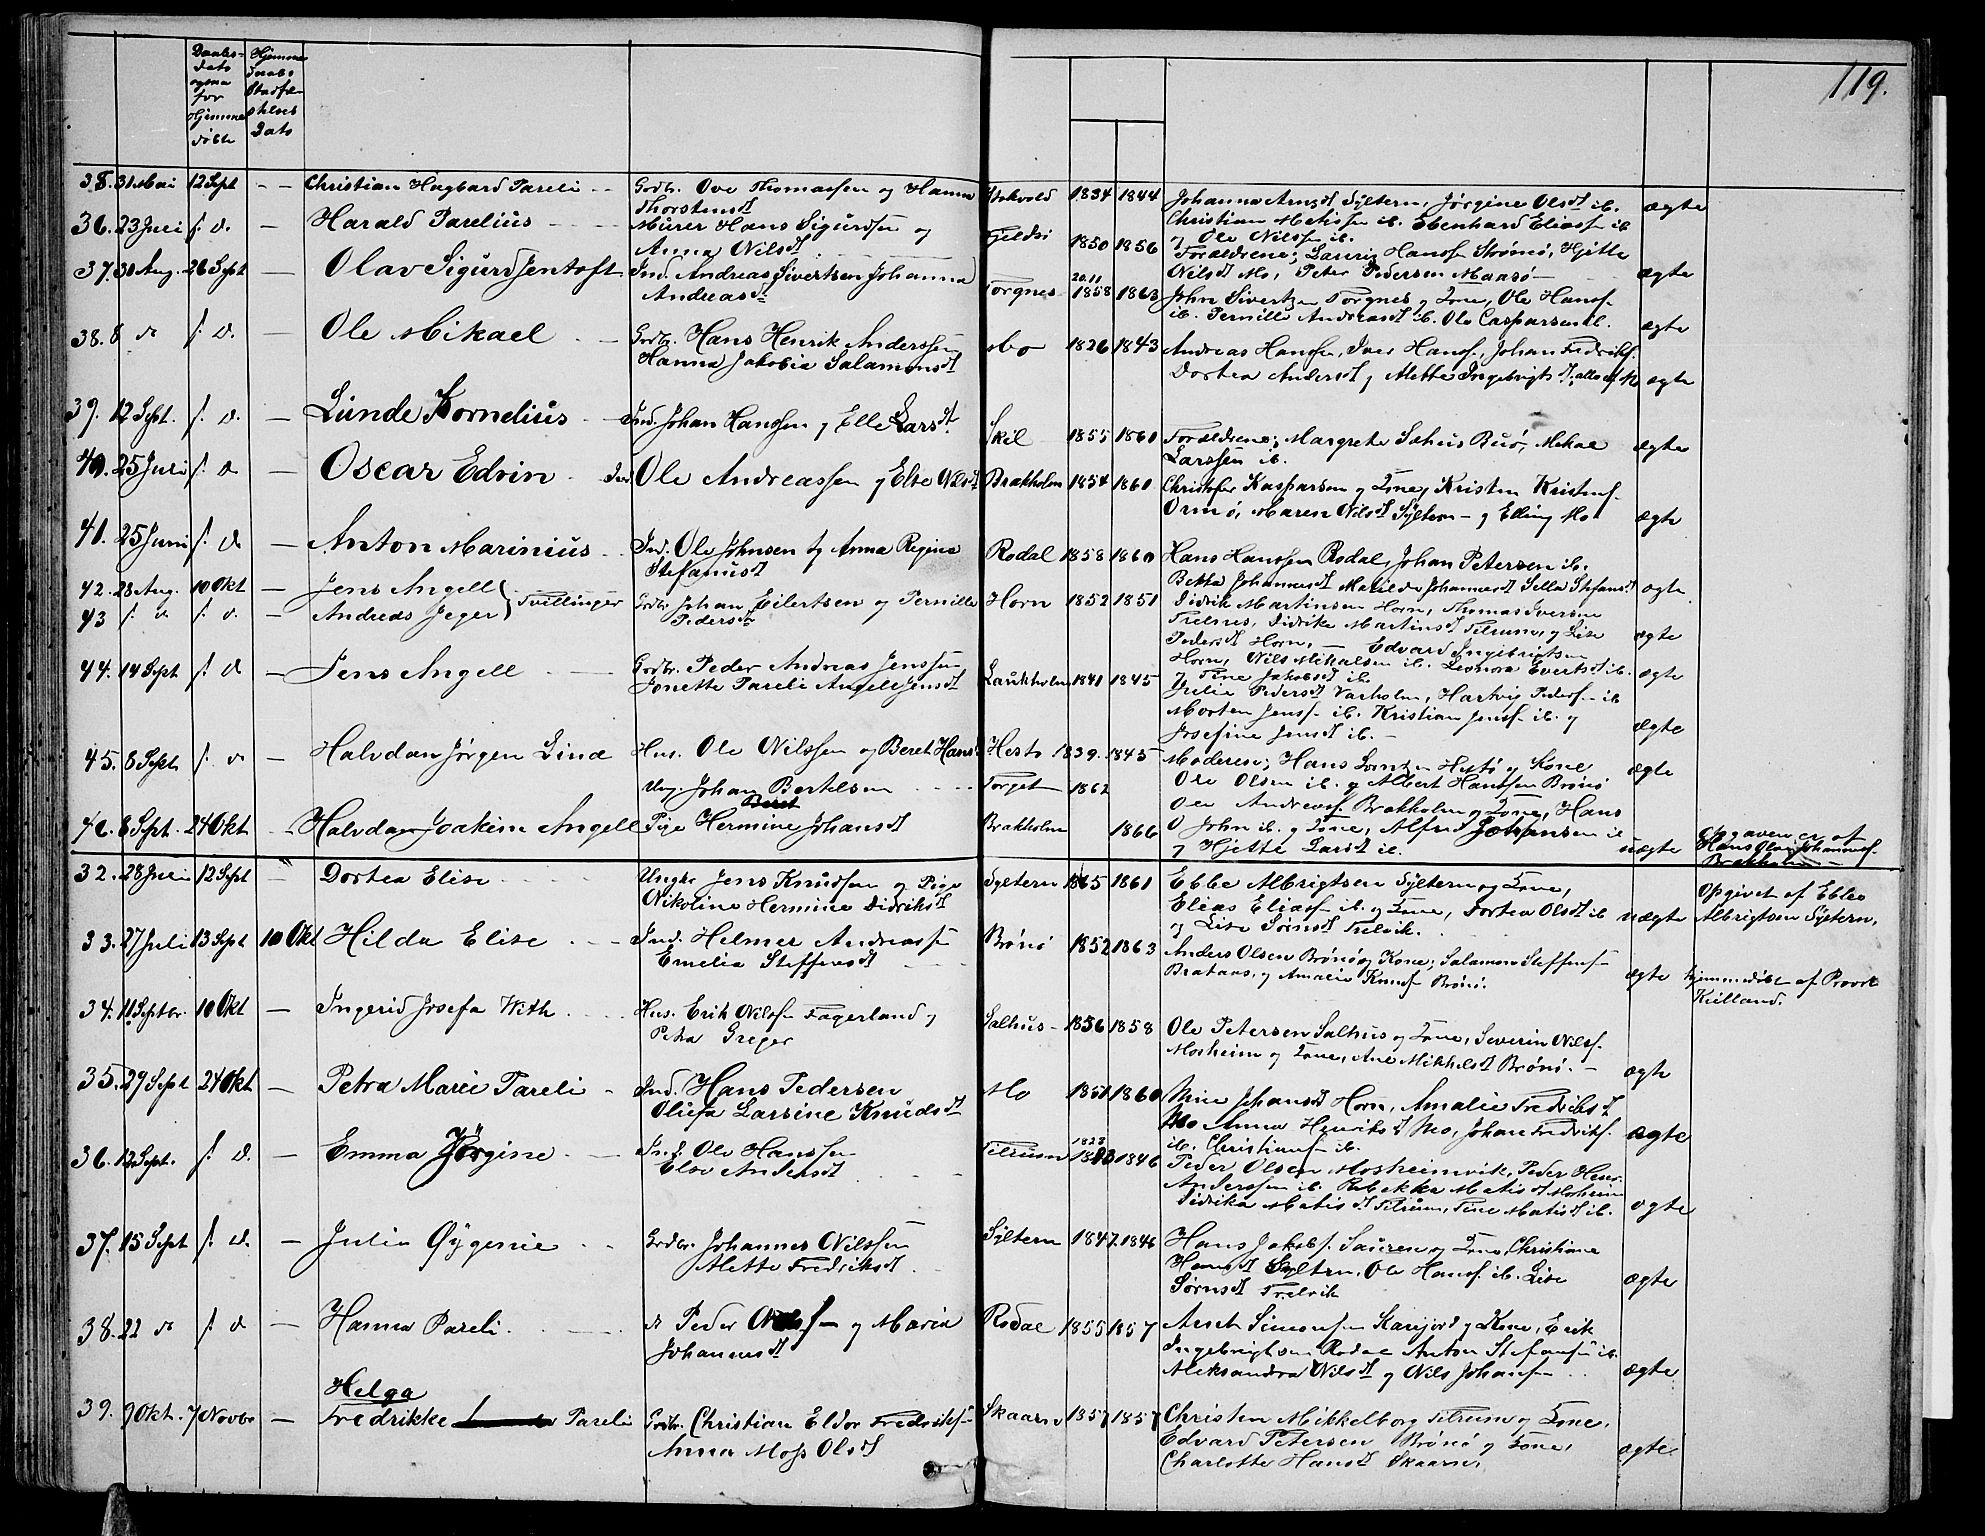 119.
Daabs-
dato
ogsaa
for
Hjemme
døbte
Hjemme
daabs
Stadfæ-
stelses
Dato
38. 31 Mai 12 Sept - - Christian Hagbard Pareli - - Grdbr. Ove Thomassen og Hanna
Thorstensdt 1834 1844 Johanna Arnsdt Syltern, Jørgine Olsdt ib.
Christian Matissen ib. Ebenhard Eliassen ib
og Ole Nilssen ib. ægte
36. 23 Juli s. d. - Harald Parelius - - Murer Hans Sigurdsen og
Anna Nilsdt 1850 1856 Forældrene; Laurits Hanss. Strømø, Hjitte
Nilsdt Mo, Peter Pedersen Maasø - ægte
37. 30 Aug. 26 Sept Olav Sigurd Jentoft Ind. Andreas Sivertsen Johanna
Andreasdt Torgnes 20/11 1858 1863 John Sivertsen Torgnes og Kone, Ole Hanss.
ib. Pernille Andreasdt ib. Ole Caspersen ib. ægte
38. 8 do s. d. - Ole Mikael - Grdbr. Hans Henrik Anderssen
Hanna Jakobia Salamonsdt Mo 1826 1843 Andreas Hanssen, Iver Hanss., Johan Fredriks.
Dortea Andersdt og Alette Ingebrigtsdt, alle af Mo ægte
39. 12 Sept. s. d. - Lunde Kornelius - Ind. Johan Hanssen og Elle Larsdt. Skil 1855 1860 Forældrene; Margrete Sahus Buø, Mikal
Larssen ib. ægte
40. 25 Juli s. d. - Oscar Edvin - Ind Ole Andreassen og Else Nilsdt Brækholm 1854 1860 Christofer Kaspersen og Kone, Kristen Kristens.
Ormø, Maren Nilsdt Syltern - og Elling Mo ægte
41. 25 Juni s. d. - Anton Marinius - Ind. Ole Johnsen og Anna Regine
Stefanusdt Rodal 1858 1860 Hans Hanssen Rodal, Johan Petersen ib.
Betta Johannesdt Matilde Johannesdt Silla Stefansdt ægte
42. 28 Aug. 10 Okt - Jens Angell } Tvillinger Grdbr Johan Eilertsen og Pernille
Pedersdt Horn 1852 1851 Didrik Martinsen Horn, Thomas Iversen
Trelnes, Didrike Martinsdt Tilrum, og Lise
Pedersdt Horn, - Edvard Ingebrigtsen
43 s. d. s. d. - Andreas Jeger Horn, Nils Mikalsen ib. Leonora Evertsdt ib.
og Tine Jakobsdt ib. ægte
44. 14 Sept s. d. - Jens Angell - Grdbr. Peder Andreas Jenssen
Jonette Pareli Angell Jensdt Laukholm 1841 1845 Julie Pedersdt Varholm, Hartvig Peders. ib
Morten Jenss. ib. Kristian Jenss. ib. og
Josefine Jensdt ib. - ægte
45. 8 Sept s. d. - Halvdan Jørgen Lind Hus. Ole Nilssen og Beret Hansdt Hestø 1839. 1845 Moderen; Hans Lorntzen Hestø og Kone
Ole Olsen ib. og Albert Hanssen Brønø ægte
46. 8 Sept. 24 Okt - Halvdan Joakim Angell Ung. Johan Bertelsen - - Torget 1862
Pige Hermine Johansdt Brækholm 1866 Ole Andreass. Brækholm og Kone, Hans
John ib. og Kone, Alfred Johansen ib
og Hjette Larsdt ib. uægte Opgaven er af
Hans Olai Johannes.
Brækholm -
32. 28 Juli 12 Sept - Dortea Elise - - Ungkr Jens Knudsen og Pige
Nikoline Hermine Didriksdt Syltern 1865 1861 Ebbe Albrigtsen Syltern og Kone,
Elias Eliass. ib. og Kone, Dortea Olsdt ib
og Lise Sørnsdt Trelvik. uægte Opgivet af Ebbe
Albrigtsen Syltern,
33. 27 Juli 13 Sept 10 Okt Hilda Elise - - Ind. Helmer Andreass.
Emelia Steffensdt Brønø 1852 1863 Anders Olsen Brønø og Kone; Salamon Steffens.
Brataas, og Amalie Knuds. Brønø. ægte Hjemmedøbt af Provst
Kielland.
34. 11 Septbr. 10 Okt - Ingerid Josefa With - - Hus. Erik Nilss. Fagerland og
Petra Greger Salhus - 1856 1858 Ole Petersen Salhus og Kone, Severin Nilss.
Mosheim og Kone, Ane Mikkelsdt Brønø. - ægte
35. 29 Sept 24 Okt - Petra Marie Pareli - Ind. Hans Pedersen
Olufa Larsine Knudsdt Mo 1851 1860 Mine Johansdt Horn, Amalie Fredriksdt
Mo Anna Henriksdt Mo, Johan Fredriks.
ib. Christians. ib. ægte
36. 12 Sept. s. d. - Emma Jørgine - Ind. Ole Hanssen
Else Andersdt Tilrum 1823 1846 Peder Olsen Mosheimvik, Peder Hans.
Anderssen ib. Rebekka Matisdt Mosheim
Didrika Matisdt Tilrum, Tine Matisdt ib. ægte
37. 15 Sept s. d. - Julie Øygenie - Grdbr. Johannes Nilssen
Mette Fredriksdt. Syltern 1847. 1846 Hans Jakobs. Sauren og Kone, Christiane
Hansdt Syltern, Ole Hanss. ib. Lise
Sørnsdt Trelvik ægte
38. 22 do s. d. - Hanna Pareli. - do Peder Nilss. og Maria
Johannesdt Rodal 1855 1857 Arnt Simons. Skarjord og Kone, Erik
Ingebrigtsen Rodal Anton Stefans. ib.
Aleksandra Nilsdt og Nils Johans. - ægte
39. 9 Okt. 7 Novbr - Helga
Fredrikke Pareli Grdbr. Christian Eldor Fredriks.
Anna Moss Olsdt Skaarn 1857 1857 Christen Mikkelborg Tilrum og Kone,
Edvard Petersen Brønø og Kone,
Charlotte Hansdt Skaarn, ægte